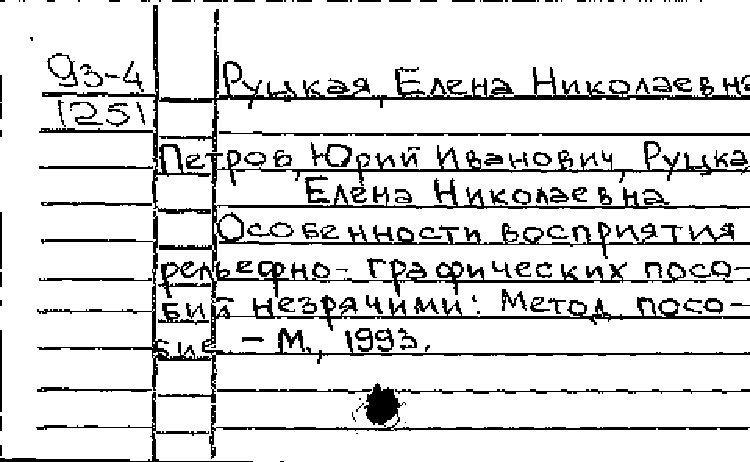 93-4
1251
Руцкая, Елена Николаевна
Петров, Юрий Иванович, Руцка
Елена Николаевна
Особенности восприятия
рельефно-графических посо-
бий незрячими: Метод. посо-
бие - М., 1993.